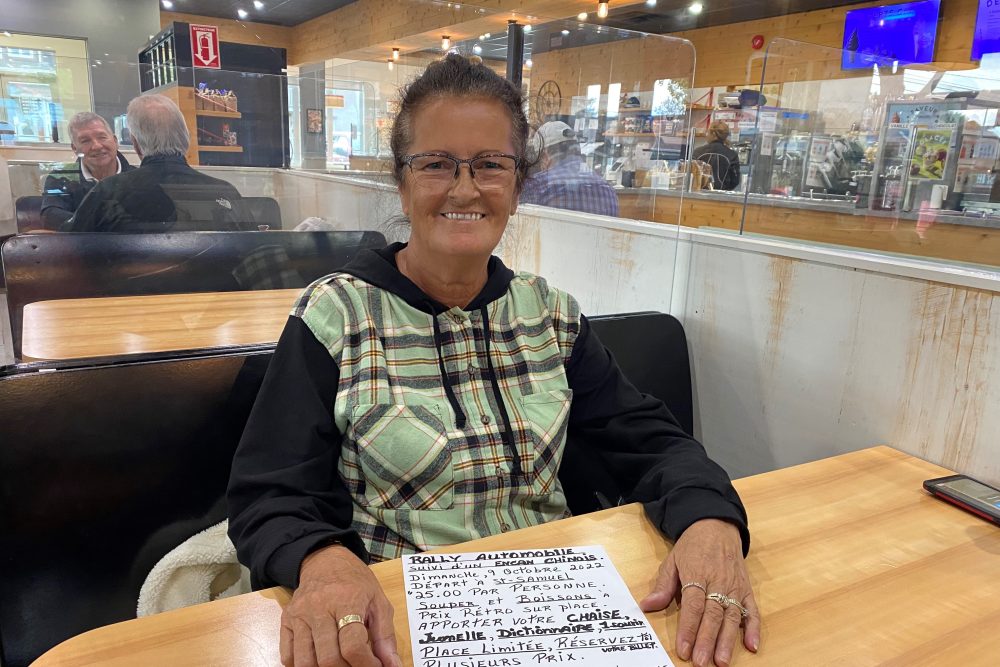 RALLY AUTOMOBILE,
SUIVI D'UN ENCAN CHINOIS
DIMANCHE, 9 OCTOBRE 2022
DÉPART À ST-SAMUEL
$25.00 PAR PERSONNE.
SOUPER ET BOISSONS À
PRIX RÉTRO SUR PLACE.
APPORTER VOTRE CHAISE,
JUMELLE, DICTIONNAIRE,
PLACE LIMITÉE, RÉSERVEZ TÔT
VOTRE BILLET.
PLUSIEURS PRIX.